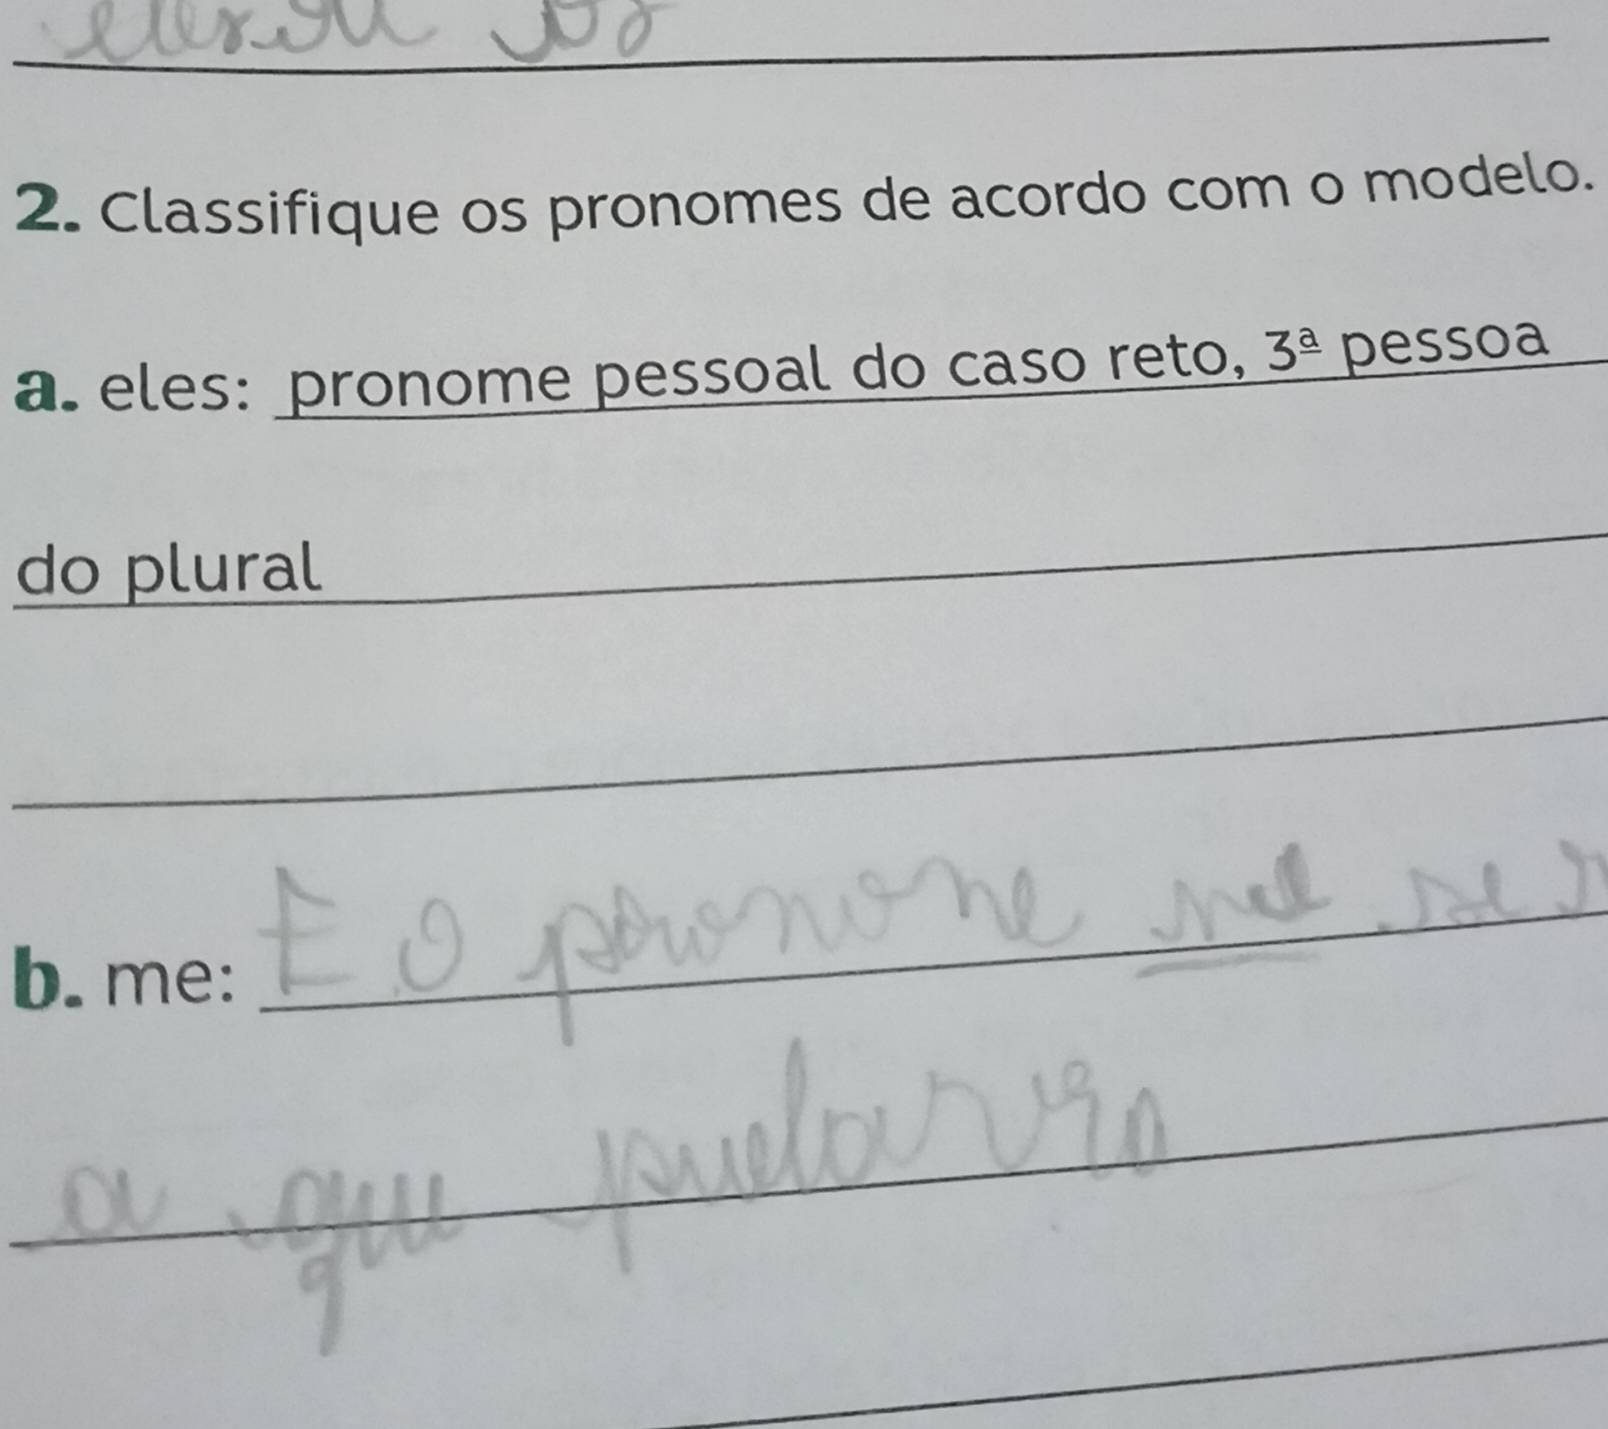 2. Classifique os pronomes de acordo com o modelo.
a. eles: pronome pessoal do caso reto, 3ª pessoa
do plural
b. me: E O pronone me
a que